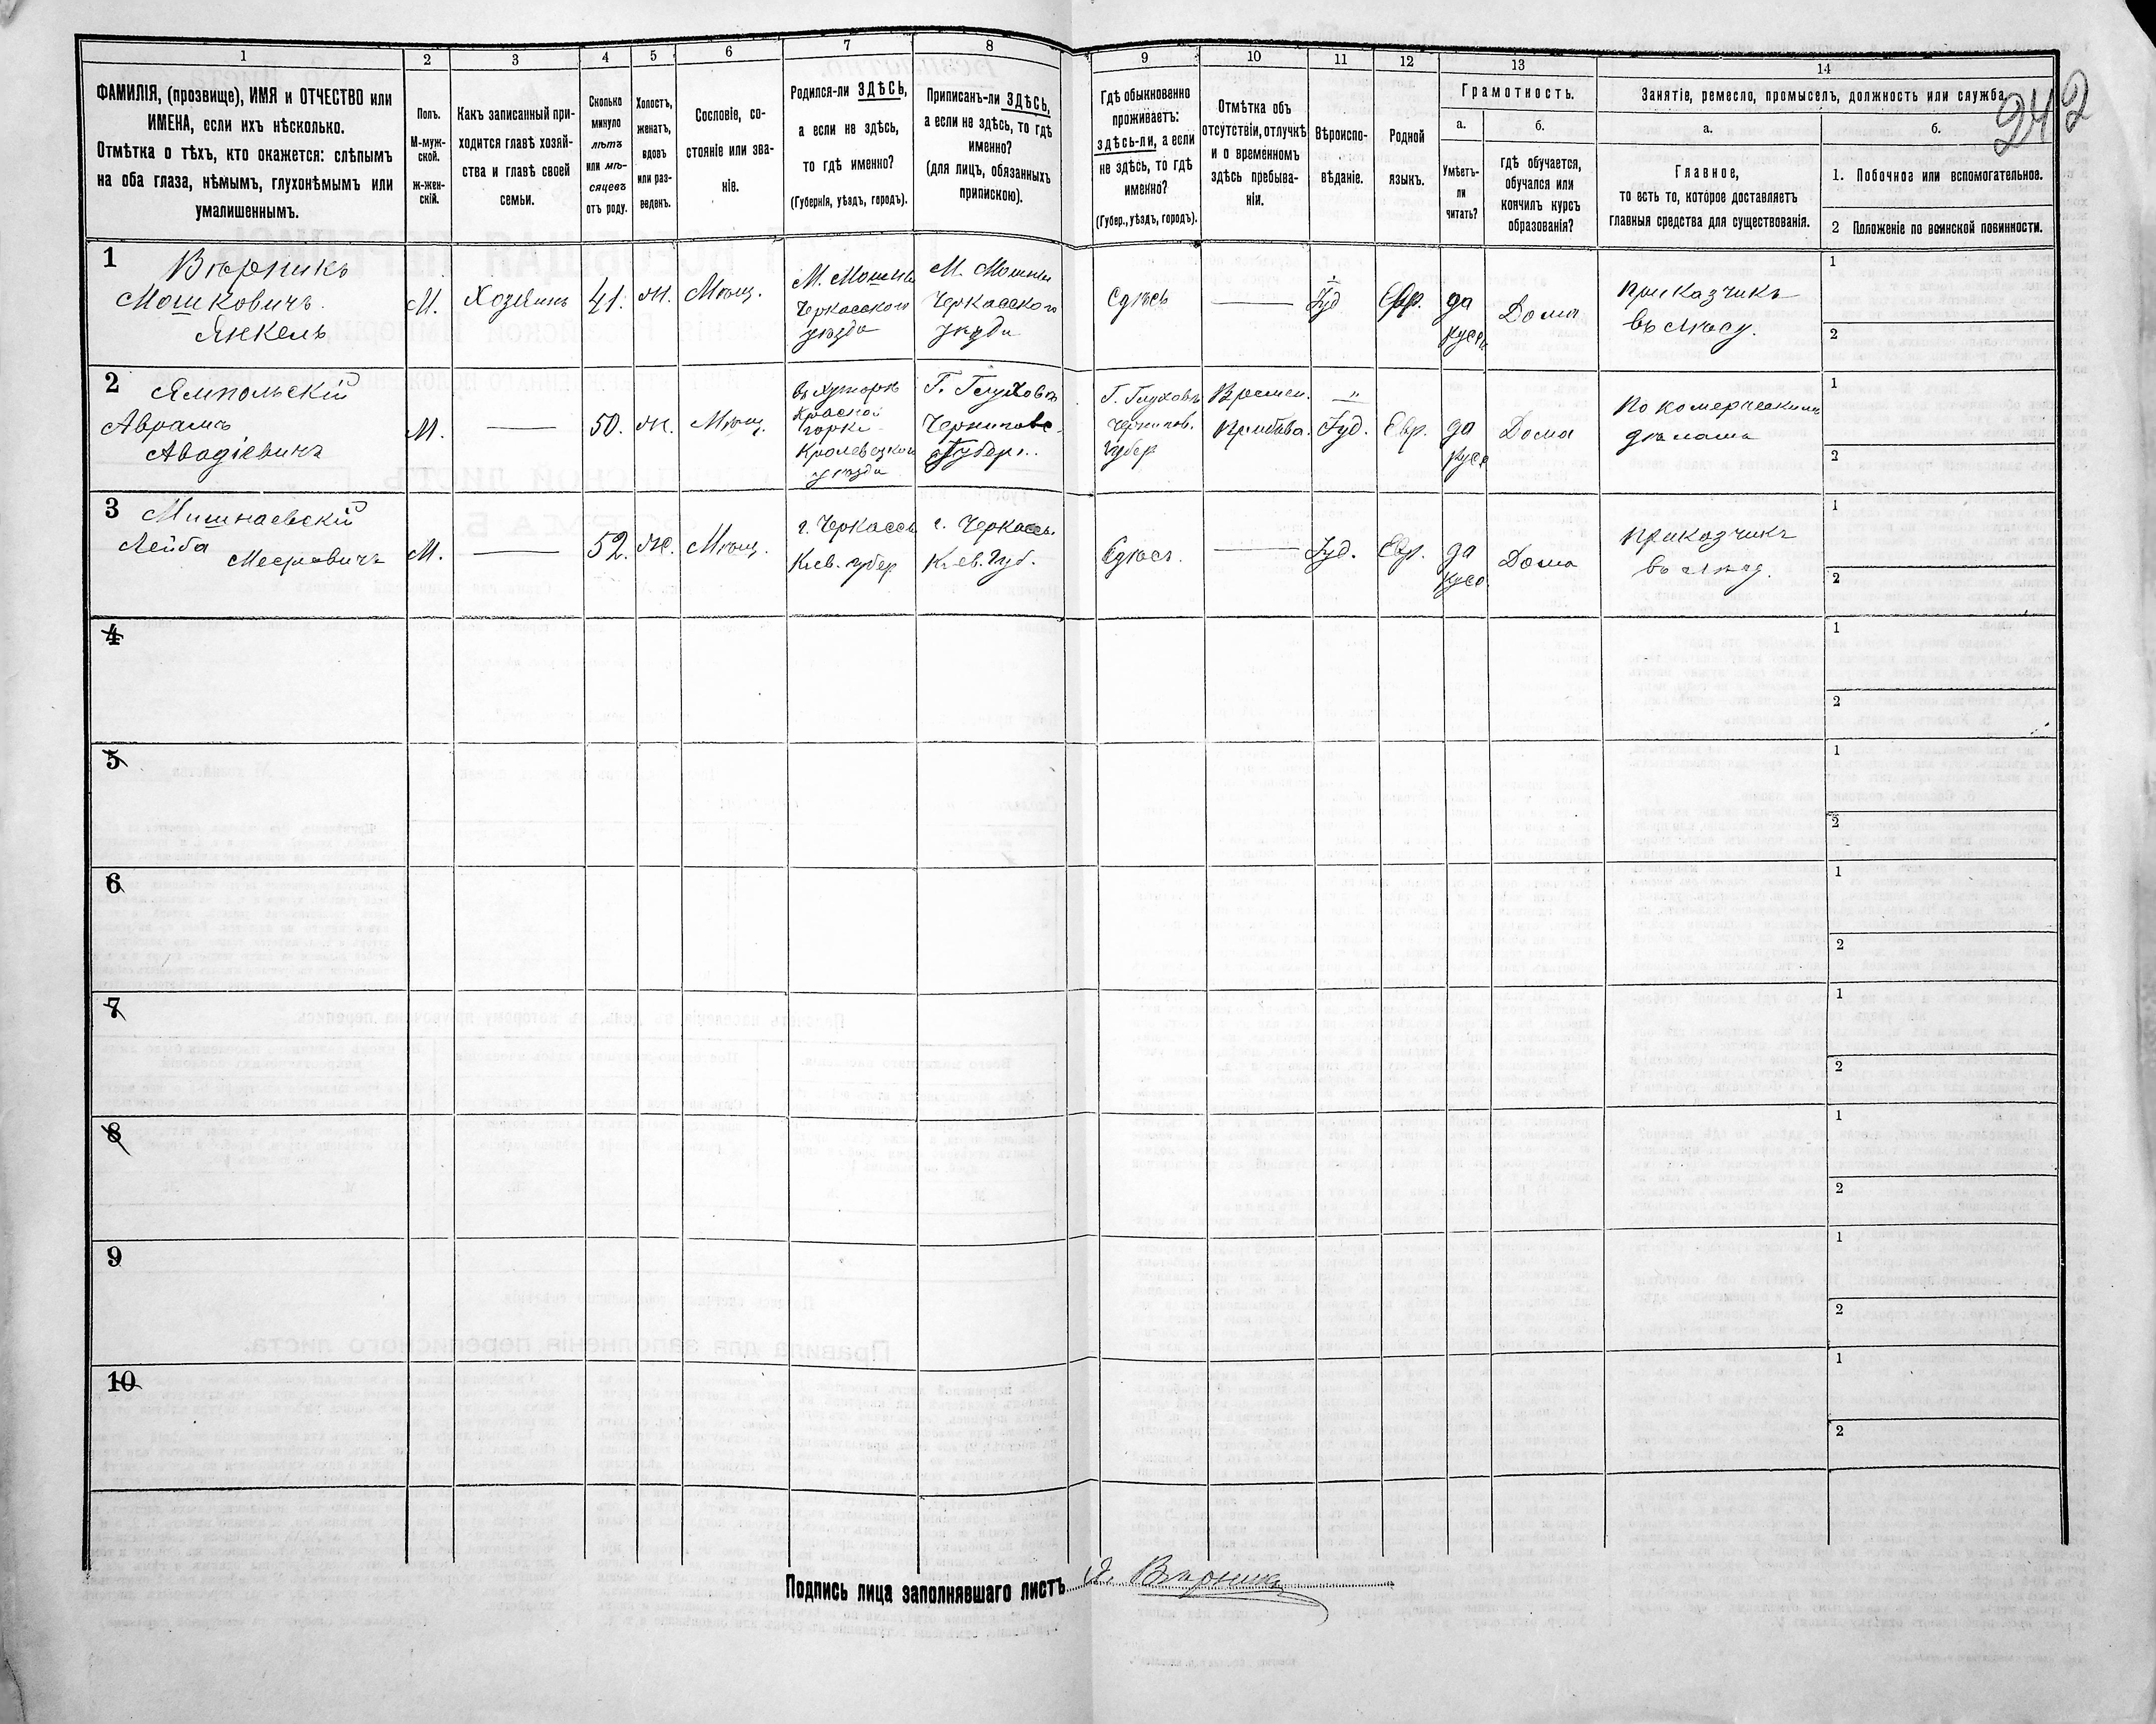 1
2
3
4
5
6
7
8
9
10
11
12
13
14
242
ФАМИЛІЯ, (прозвище), ИМЯ и ОТЧЕСТВО или
ИМЕНА, если ихъ нѣсколько.
Отмѣтка о тѣхъ, кто окажется: слѣпымъ
на оба глаза, нѣмымъ, глухонѣмымъ или
умалишеннымъ.
Полъ.
М-муж-
ской.
ж-жен-
скій.
Какъ записанный при-
ходится главѣ хозяй-
ства и главѣ своей
семьи.
Сколько
минуло
лѣтъ
или мѣ-
сяцевъ
отъ роду.
Холостъ,
женатъ,
вдовъ
или раз-
веденъ.
Сословіе, со-
стояніе или зва-
ніе.
Родился-ли ЗДѢСЬ,
а если не здѣсь,
то гдѣ именно?
(Губернія, уѣздъ, городъ).
Приписанъ-ли ЗДѢСЬ,
а если не здѣсь, то гдѣ
именно?
(для лицъ, обязанныхъ
припискою).
Гдѣ обыкновенно
проживаетъ:
здѣсь-ли, а если
не здѣсь, то гдѣ
именно?
(Губер., уѣздъ, городъ).
Отмѣтка объ
отсутствіи, отлучкѣ
и о временномъ
здѣсь пребыва-
ніи.
Вѣроиспо-
вѣданіе.
Родной
языкъ.
Грамотность.
а.
Умѣетъ-
ли
читать?
б.
гдѣ обучается,
обучался или
кончилъ курсъ
образованія?
Занятіе, ремесло, промыселъ, должность или служба.
а.
Главное,
то есть то, которое доставляетъ
главныя средства для существованія.
б.
1. Побочное или вспомогательное.
2 Положеніе по воинской повинности.
1
Вѣрникъ
Мошковичъ
Янкель
М.
Хозяинъ
41.
Ж.
Мѣщ.
М. Мошны
Черкасскаго
уѣзда
М. Мошны
Черкасскаго
уѣзда
Сдѣсь
Іуд
Евр.
да
Дома
приказчикъ
въ лѣсу.
1
2
2
Ямпольскій
Аврамъ
Авадіевичъ
М.
50.
Ж.
Мѣщ.
въ хуторѣ
Красной
горкѣ
Кролевецкаго
уѣзда
Г. Глуховъ
Губер.
Г. Глуховъ
Чернигов.
Губер
Времен.
Іуд.
Евр.
да
Дома
По комерческимъ
дѣламъ
1
2
3
Мишнаевскій
Лейба
М.
52.
Ж.
Мѣщ.
г. Черкассы
Кіев. губер
г. Черкассы.
Кіев. Губ.
Сдѣсь.
Іуд.
Евр.
да
Дома
приказчикъ
въ лѣсу.
1
2
4
1
2
5
1
2
6
1
2
7
1
2
8
1
2
9
1
2
10
1
2
Подпись лица заполнявшаго листъ Я. Вѣрникъ